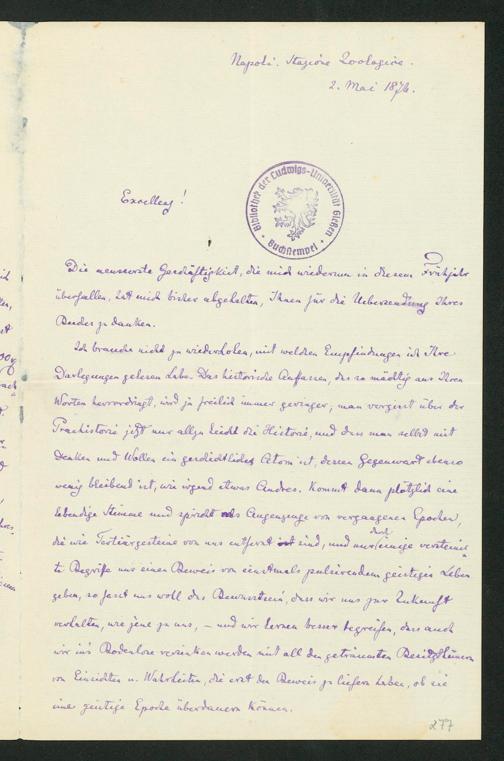 Napoli. Stazione Zoologica.
2. Mai 1876.
Bibliothek der Ludwigs-Universität Gießen
Buchstempel
Excellenz!
Die äusserste Geschäftigkeit, die mich wiederum in diesem Frühjahr
überfallen, hat mich bisher abgehalten, Ihnen für die Uebersendung Ihres
Bandes zu danken.
Ich brauche nicht zu wiederholen, mit welchen Empfindungen ich Ihre
Darlegungen gelesen habe. Das historische Auffassen, das so mächtig aus Ihren
Worten hervordringt, wird ja freilich immer geringer, man vergisst über der
Praehistorie jetzt nur allzu leicht die Historie, und dass man selbst mit
Denken und Wollen ein geschichtliches Atom ist, dessen Gegenwart ebenso
wenig bleibend ist, wie irgend etwas Andres. Kommt dann plötzlich eine
lebendige Stimme und spricht als Augenzeuge von vergangenen Epochen,
die wie Tertiärgesteine von uns entfernt sind, und nur durch einige verstein-
te Begriffe uns einen Beweis von einstmals pulsirendem geistigen Leben
geben, so fasst uns wohl das Bewusstsein, dass wir uns zur Zukunft
verhalten, wie jene zu uns, – und wir lernen besser begreifen, dass auch
wir in's Bodenlose versinken werden mit all den geträumten
von Einsichten u. Wahrheiten, die erst den Beweis zu liefern haben, ob sie
eine geistige Epoche überdauern können.
277